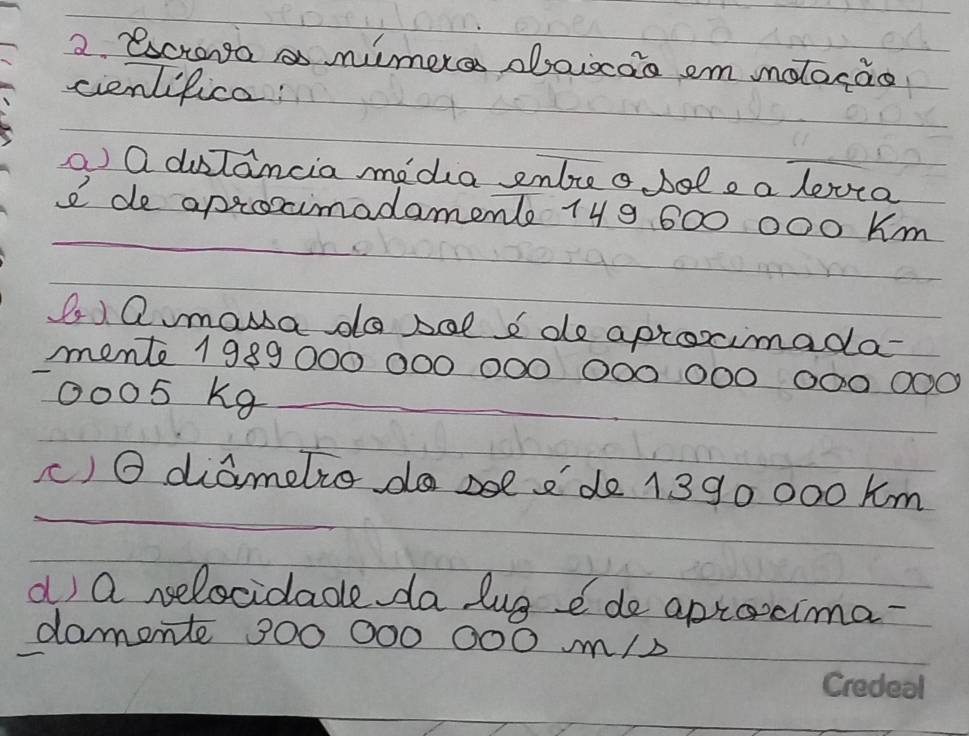 2. Escreva os números abaixão em notação
científica:
a) A distância média entre o sol e a terra
é de aproximadamente 149 600 000 Km
b) A massa do sol é de aproximada-
mente 1989 000 000 000 000 000 000 000
0005 kg
c) O diâmetro do sol é de 1390 000 Km
d) A velocidade da luz é de aproxima-
damente 300 000 000 m/s
Credeal